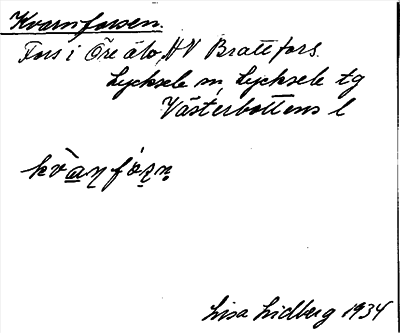 Kvarnforsen.
Fors i Öre älv, NV Brattfors.
Lycksele sn, Lycksele tg
Västerbottens l
Lisa Lidberg 1934